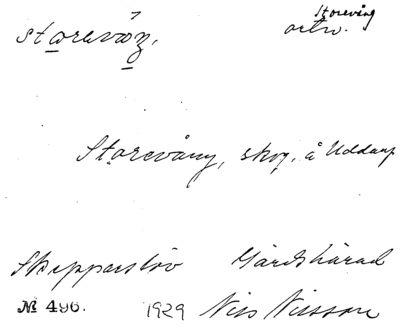 Storevång
storevåŋ. ortn.
Storevång, skog, å Uddarp
Skepparslöv Gärds härad
№ 496. 1929 Nils Nilsson